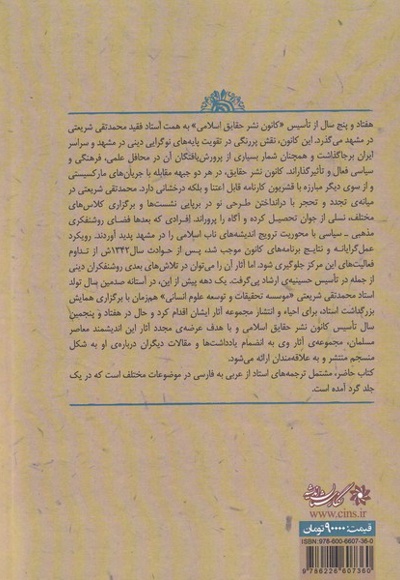 هفتاد و پنج سال از تأسیس «کانون نشر حقایق اسلامی» به همت استاد فقید محمدتقی شریعتی
در مشهد می‌گذرد. این کانون، نقش پررنگی در تقویت پایه‌های نوگرایی دینی در مشهد و سراسر
ایران برجاگذاشت و همچنان شمار بسیاری از پرورش‌یافتگان آن در محافل علمی، فرهنگی و
سیاسی فعال و تأثیرگذاراند. کانون نشر حقایق، در هر دو جبهه مقابله با جریان‌های مارکسیستی
و از سوی دیگر مبارزه با قشریون کارنامه قابل اعتنا و بلکه درخشانی دارد. محمدتقی شریعتی در
میانه‌ی تجدد و تحجر با درانداختن طرحی نو در برپایی نشست‌ها و برگزاری کلاس‌های
مختلف، نسلی از جوان تحصیل کرده و آگاه را پروراند. افرادی که بعدها فضای روشنفکری
مذهبی ـ سیاسی با محوریت ترویج اندیشه‌های ناب اسلامی را در مشهد پدید آوردند. رویکرد
عمل‌گرایانه و نتایج برنامه‌های کانون موجب شد، پس از حوادث سال۱۳۴۲ش از تداوم
فعالیت‌های این مرکز جلوگیری شود. اما آثار آن را می‌توان در تلاش‌های بعدی روشنفکران دینی
از جمله در تأسیس حسینیه‌ی ارشاد پی‌گرفت. یک دهه پیش از این، در آستانه صدمین سال تولد
استاد محمدتقی شریعتی «موسسه تحقیقات و توسعه علوم انسانی» هم‌زمان با برگزاری همایش
بزرگداشت استاد، برای احیاء و انتشار مجموعه آثار ایشان اقدام کرد و حال در هفتاد و پنجمین
سال تأسیس کانون نشر حقایق اسلامی و با هدف عرضه‌ی مجدد آثار این اندیشمند معاصر
مسلمان، مجموعه‌ی آثار وی به انضمام یادداشت‌ها و مقالات دیگران درباره‌ی او به شکل
منسجم منتشر و به علاقه‌مندان ارائه می‌شود.
کتاب حاضر، مشتمل ترجمه‌های استاد از عربی به فارسی در موضوعات مختلف است که در یک
جلد گرد آمده است.
www.cins.ir
قیمت: ۹۰۰۰۰ تومان
ISBN: 978-600-6607-36-0
9 786226 607360